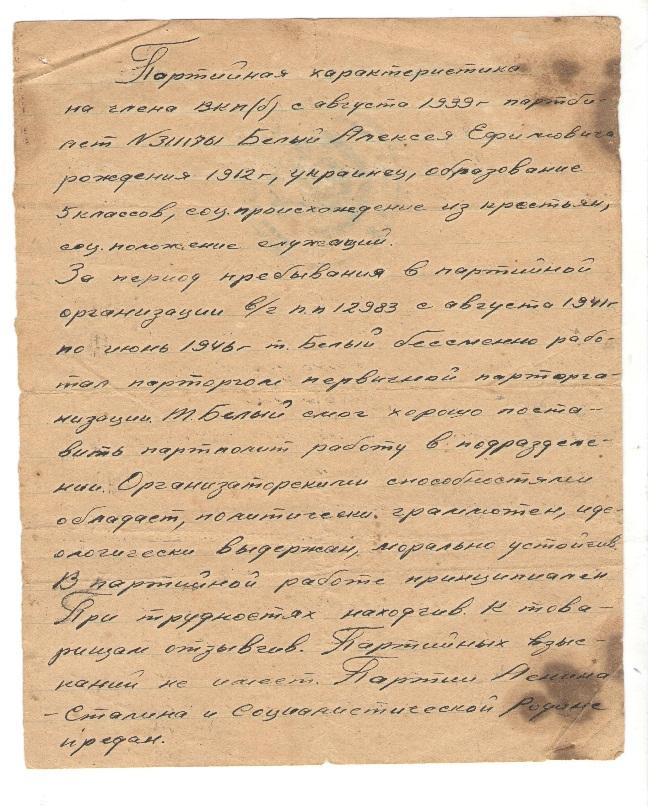 Партийная характеристика
на члена ВКП(б) с августа 1939г партби-
лет №3111761 Белый Алексея Ефимовича
рождения 1912г, украинец, образование
5 классов, соц.происхождение из крестьян,
соц.положение служащий.
За период пребывания в партийной
организации в/ч п.п 12983 с августа 1941г
по июнь 1946г т. Белый бессменно рабо-
тал парторгом первичной парторга-
низации. Т. Белый смог хорошо поста-
вить партполит работу в подразделе-
нии. Организаторскими способностями
обладает, политически граммотен, иде-
ологически выдержан, морально устойчив.
В партийной работе принципиален
При трудностях находчив. К това-
рищам отзывчив. Партийных взыс-
каний не имеет. Партии Ленина
- Сталина и Социалистической Родине
предан.